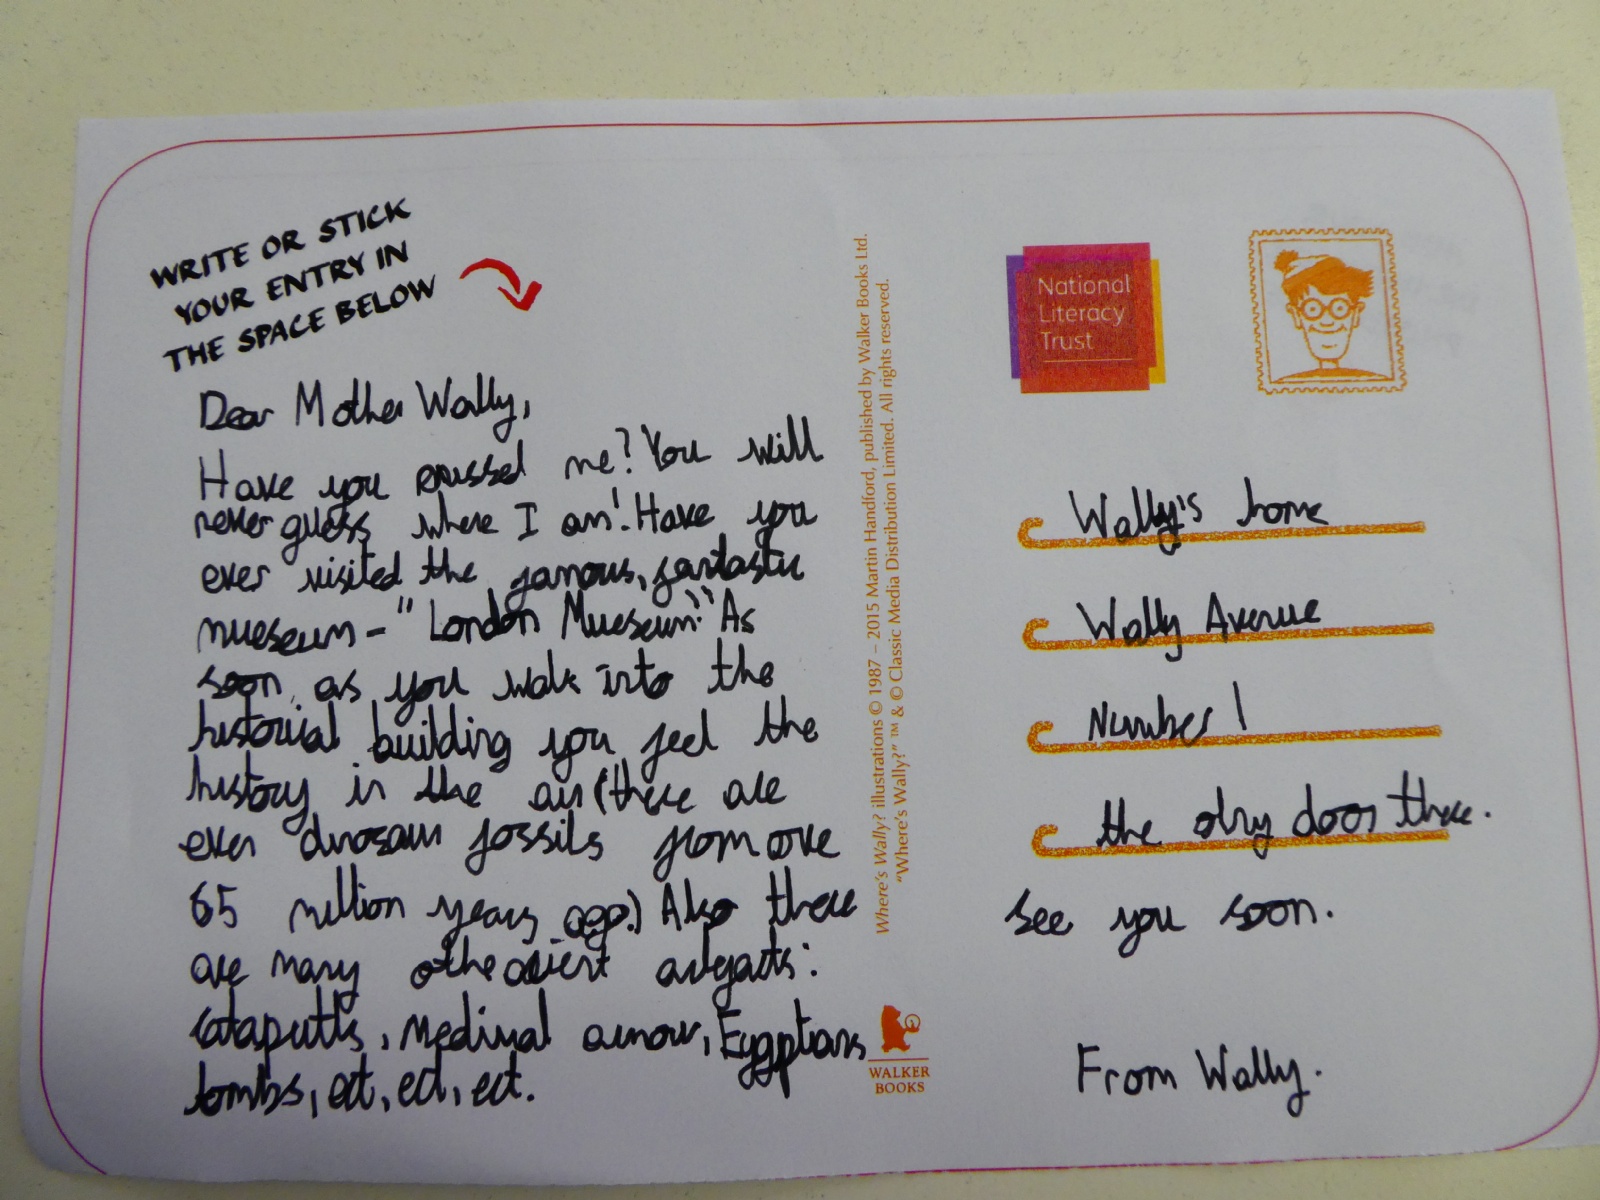 WRITE OR STICK
YOUR ENTRY IN
THE SPACE BELOW
Dear Mother Wally,
Have you missed me? You will
never guess where I am! Have you
ever visited the famous, fantastic
mueseum - "London Mueseum." As
soon as you walk into the
historical building you feel the
history in the air (there are
even dinosaur fossils from over
65 million years ago.) Also there
are many other artifacts:
catapults, Medival armour, Eygptians
tombs, ect, ect, ect.
Where's Wally? illustrations © 1987 – 2015 Martin Handford, published by Walker Books Ltd.
"Where's Wally?" ™ & © Classic Media Distribution Limited. All rights reserved.
WALKER
BOOKS
National
Literacy
Trust
Wally's home
Wally Avenue
Number 1
the only door there.
see you soon.
From Wally.